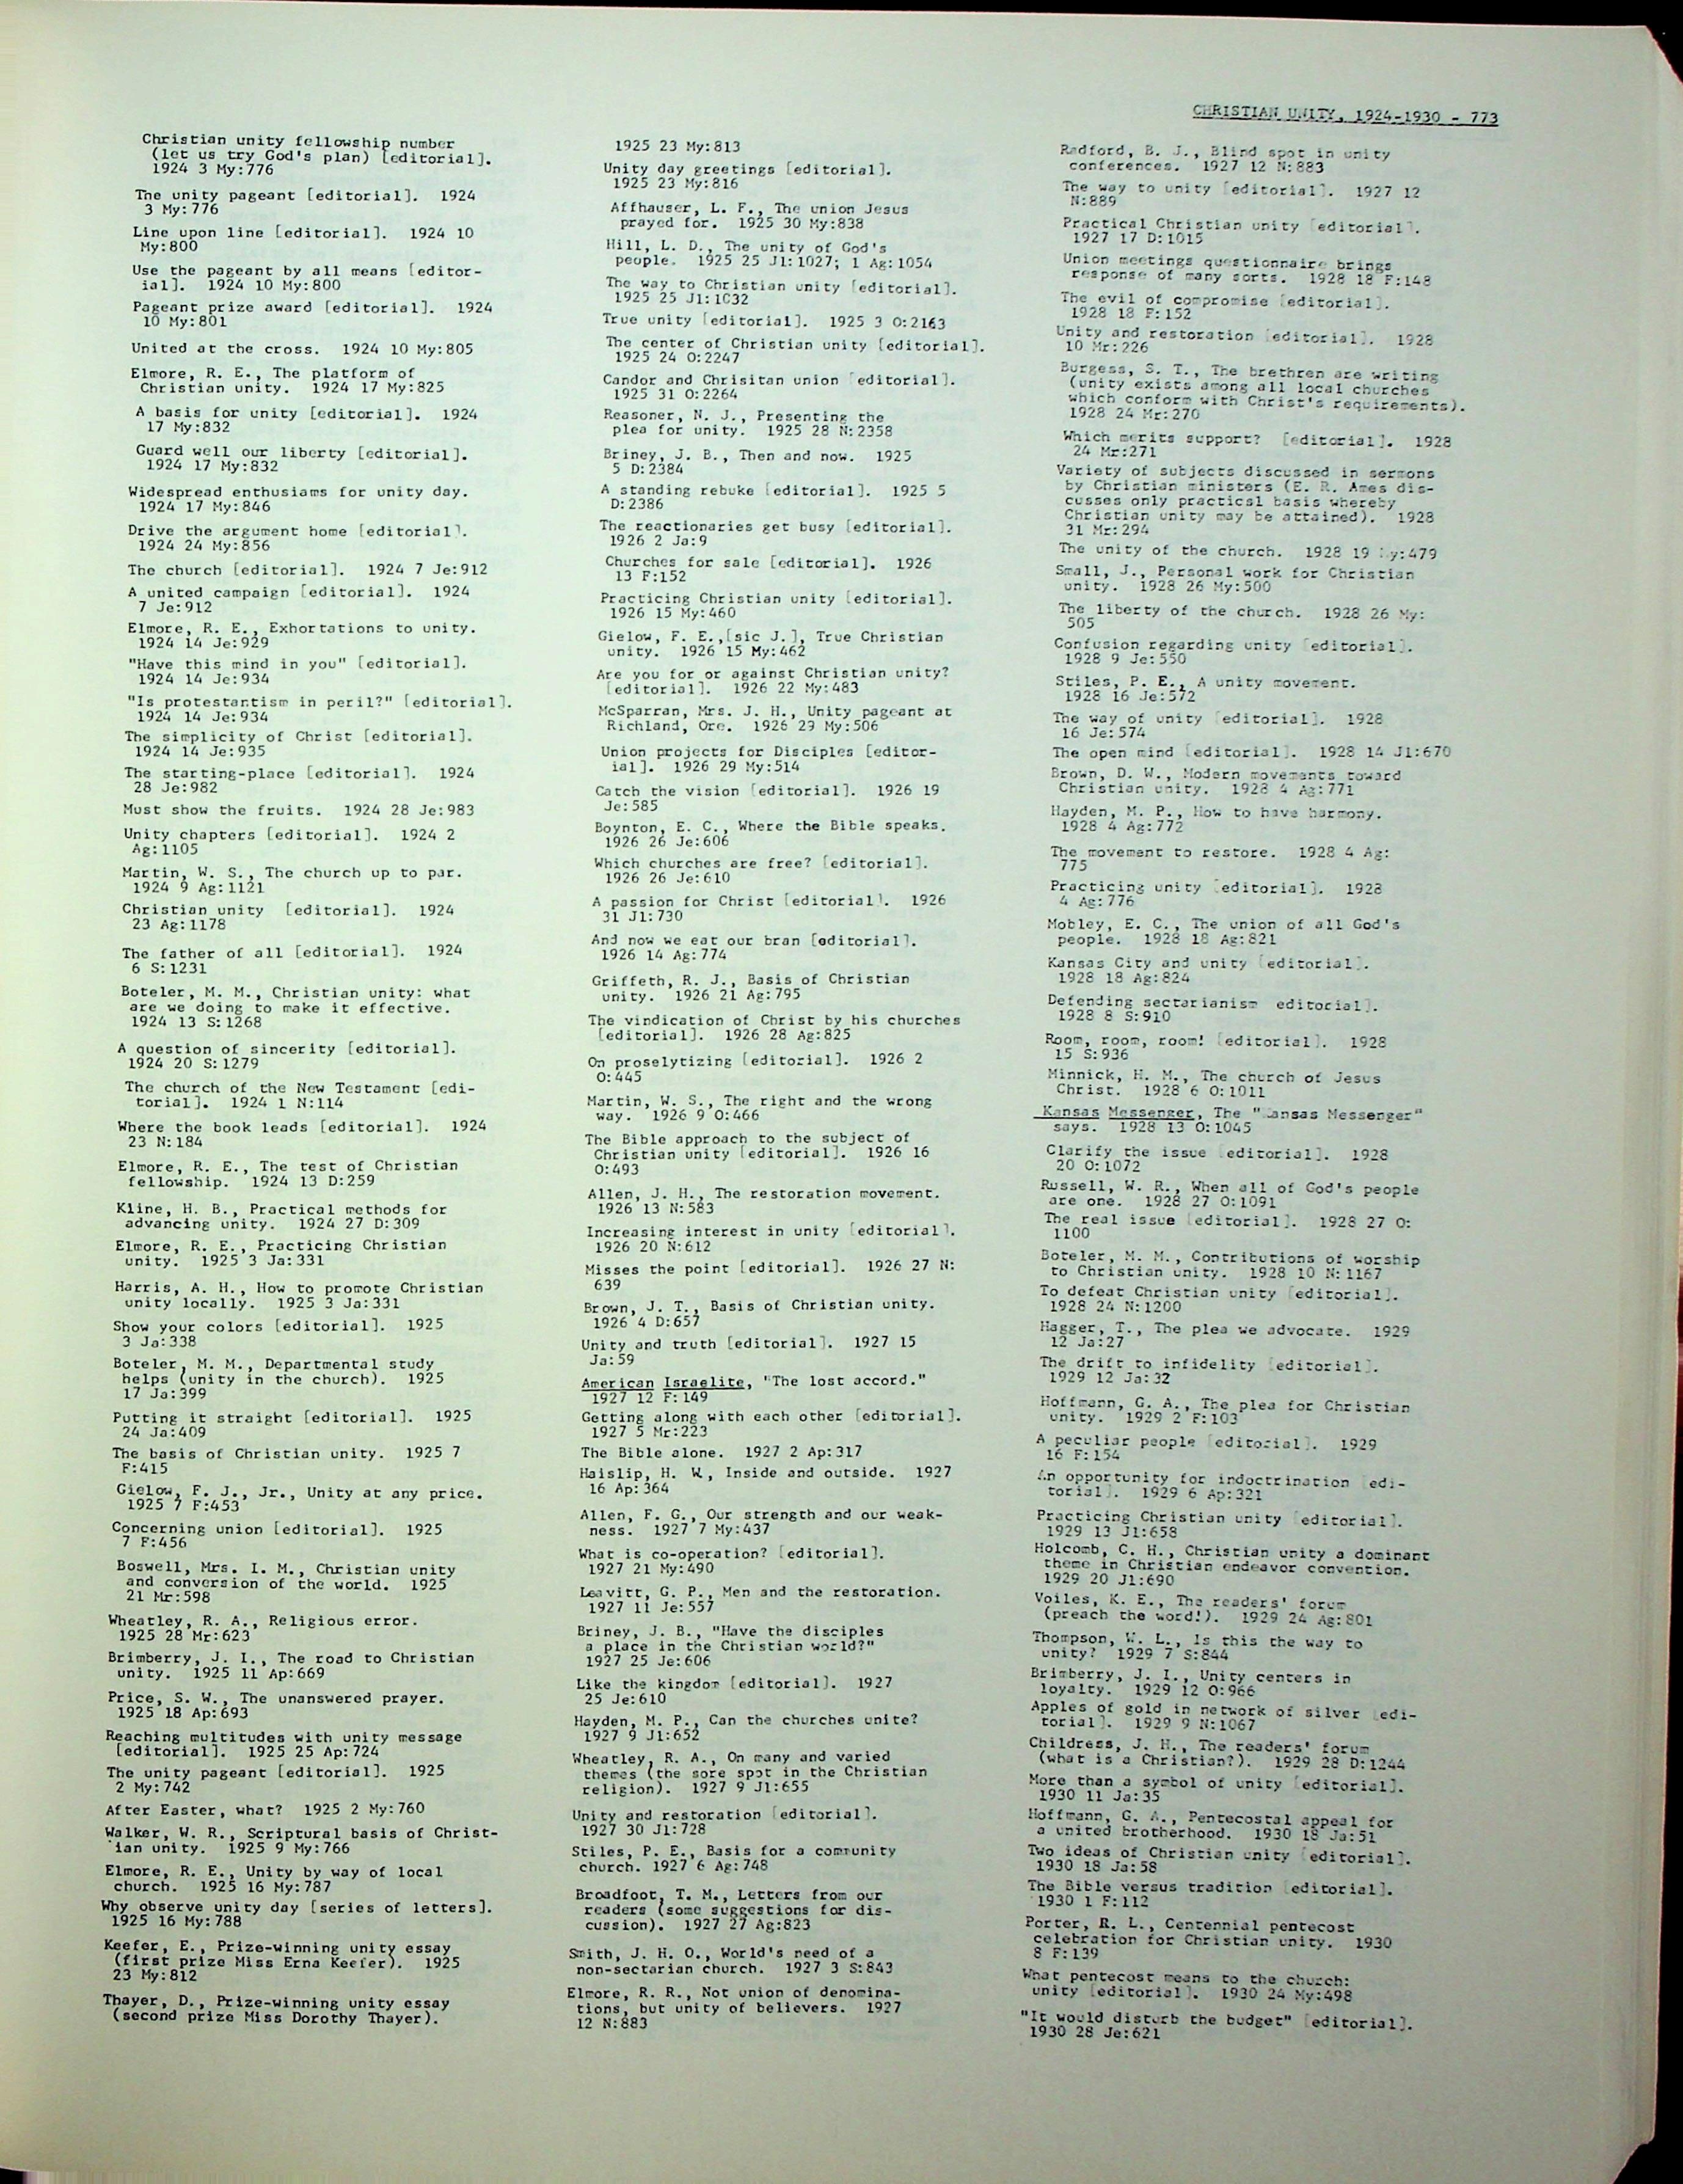 CHRISTIAN UNITY, 1924-1930 - 773
Christian unity fellowship number
(let us try God's plan) [editorial].
1924 3 My:776
The unity pageant [editorial]. 1924
3 My:776
Line upon line [editorial]. 1924 10
My:800
Use the pageant by all means [editor-
ial]. 1924 10 My:800
Pageant prize award [editorial]. 1924
10 My:801
United at the cross. 1924 10 My:805
Elmore, R. E., The platform of
Christian unity. 1924 17 My:825
A basis for unity [editorial]. 1924
17 My:832
Guard well our liberty [editorial].
1924 17 My:832
Widespread enthusiams for unity day.
1924 17 My:846
Drive the argument home [editorial].
1924 24 My:856
The church [editorial]. 1924 7 Je:912
A united campaign [editorial]. 1924
7 Je:912
Elmore, R. E., Exhortations to unity.
1924 14 Je:929
"Have this mind in you" [editorial].
1924 14 Je:934
"Is protestantism in peril?" [editorial].
1924 14 Je:934
The simplicity of Christ [editorial].
1924 14 Je:935
The starting-place [editorial]. 1924
28 Je:982
Must show the fruits. 1924 28 Je:983
Unity chapters [editorial]. 1924 2
Ag:1105
Martin, W. S., The church up to par.
1924 9 Ag:1121
Christian unity [editorial]. 1924
23 Ag:1178
The father of all [editorial]. 1924
6 S:1231
Boteler, M. M., Christian unity: what
are we doing to make it effective.
1924 13 S:1268
A question of sincerity [editorial].
1924 20 S:1279
The church of the New Testament [edi-
torial]. 1924 1 N:114
Where the book leads [editorial]. 1924
23 N:184
Elmore, R. E., The test of Christian
fellowship. 1924 13 D:259
Kline, H. B., Practical methods for
advancing unity. 1924 27 D:309
Elmore, R. E., Practicing Christian
unity. 1925 3 Ja:331
Harris, A. H., How to promote Christian
unity locally. 1925 3 Ja:331
Show your colors [editorial]. 1925
3 Ja:338
Boteler, M. M., Departmental study
helps (unity in the church). 1925
17 Ja:399
Putting it straight [editorial]. 1925
24 Ja:409
The basis of Christian unity. 1925 7
F:415
Gielow, F. J., Jr., Unity at any price.
1925 7 F:453
Concerning union [editorial]. 1925
7 F:456
Boswell, Mrs. I. M., Christian unity
and conversion of the world. 1925
21 Mr:598
Wheatley, R. A., Religious error.
1925 28 Mr:623
Brimberry, J. I., The road to Christian
unity. 1925 11 Ap:669
Price, S. W., The unanswered prayer.
1925 18 Ap:693
Reaching multitudes with unity message
[editorial]. 1925 25 Ap:724
The unity pageant [editorial]. 1925
2 My:742
After Easter, what? 1925 2 My:760
Walker, W. R., Scriptural basis of Christ-
ian unity. 1925 9 My:766
Elmore, R. E., Unity by way of local
church. 1925 16 My:787
Why observe unity day [series of letters].
1925 16 My:788
Keefer, E., Prize-winning unity essay
(first prize Miss Erna Keefer). 1925
23 My:812
Thayer, D., Prize-winning unity essay
(second prize Miss Dorothy Thayer).
1925 23 My:813
Unity day greetings [editorial].
1925 23 My:816
Affhauser, L. F., The union Jesus
prayed for. 1925 30 My:838
Hill, L. D., The unity of God's
people. 1925 25 Jl:1027; 1 Ag:1054
The way to Christian unity [editorial].
1925 25 Jl:1032
True unity [editorial]. 1925 3 O:2163
The center of Christian unity [editorial].
1925 24 O:2247
Candor and Chrisitan union [editorial].
1925 31 O:2264
Reasoner, N. J., Presenting the
plea for unity. 1925 28 N:2358
Briney, J. B., Then and now. 1925
5 D:2384
A standing rebuke [editorial]. 1925 5
D:2386
The reactionaries get busy [editorial].
1926 2 Ja:9
Churches for sale [editorial]. 1926
13 F:152
Practicing Christian unity [editorial].
1926 15 My:460
Gielow, F. E.,[sic J.], True Christian
unity. 1926 15 My:462
Are you for or against Christian unity?
[editorial]. 1926 22 My:483
McSparran, Mrs. J. H., Unity pageant at
Richland, Ore. 1926 29 My:506
Union projects for Disciples [editor-
ial]. 1926 29 My:514
Catch the vision [editorial]. 1926 19
Je:585
Boynton, E. C., Where the Bible speaks.
1926 26 Je:606
Which churches are free? [editorial].
1926 26 Je:610
A passion for Christ [editorial]. 1926
31 Jl:730
And now we eat our bran [editorial].
1926 14 Ag:774
Griffeth, R. J., Basis of Christian
unity. 1926 21 Ag:795
The vindication of Christ by his churches
[editorial]. 1926 28 Ag:825
On proselytizing [editorial]. 1926 2
O:445
Martin, W. S., The right and the wrong
way. 1926 9 O:466
The Bible approach to the subject of
Christian unity [editorial]. 1926 16
O:493
Allen, J. H., The restoration movement.
1926 13 N:583
Increasing interest in unity [editorial].
1926 20 N:612
Misses the point [editorial]. 1926 27 N:
639
Brown, J. T., Basis of Christian unity.
1926 4 D:657
Unity and truth [editorial]. 1927 15
Ja:59
American Israelite, "The lost accord."
1927 12 F:149
Getting along with each other [editorial].
1927 5 Mr:223
The Bible alone. 1927 2 Ap:317
Haislip, H. W., Inside and outside. 1927
16 Ap:364
Allen, F. G., Our strength and our weak-
ness. 1927 7 My:437
What is co-operation? [editorial].
1927 21 My:490
Leavitt, G. P., Men and the restoration.
1927 11 Je:557
Briney, J. B., "Have the disciples
a place in the Christian world?"
1927 25 Je:606
Like the kingdom [editorial]. 1927
25 Je:610
Hayden, M. P., Can the churches unite?
1927 9 Jl:652
Wheatley, R. A., On many and varied
themes (the sore spot in the Christian
religion). 1927 9 Jl:655
Unity and restoration [editorial].
1927 30 Jl:728
Stiles, P. E., Basis for a community
church. 1927 6 Ag:748
Broadfoot, T. M., Letters from our
readers (some suggestions for dis-
cussion). 1927 27 Ag:823
Smith, J. H. O., World's need of a
non-sectarian church. 1927 3 S:843
Elmore, R. R., Not union of denomina-
tions, but unity of believers. 1927
12 N:883
Radford, B. J., Blind spot in unity
conferences. 1927 12 N:883
The way to unity [editorial]. 1927 12
N:889
Practical Christian unity [editorial].
1927 17 D:1015
Union meetings questionnaire brings
response of many sorts. 1928 18 F:148
The evil of compromise [editorial].
1928 18 F:152
Unity and restoration [editorial]. 1928
10 Mr:226
Burgess, S. T., The brethren are writing
(unity exists among all local churches
which conform with Christ's requirements).
1928 24 Mr:270
Which merits support? [editorial]. 1928
24 Mr:271
Variety of subjects discussed in sermons
by Christian ministers (E. R. Ames dis-
cusses only practical basis whereby
Christian unity may be attained). 1928
31 Mr:294
The unity of the church. 1928 19 My:479
Small, J., Personal work for Christian
unity. 1928 26 My:500
The liberty of the church. 1928 26 My:
505
Confusion regarding unity [editorial].
1928 9 Je:550
Stiles, P. E., A unity movement.
1928 16 Je:572
The way of unity [editorial]. 1928
16 Je:574
The open mind [editorial]. 1928 14 Jl:670
Brown, D. W., Modern movements toward
Christian unity. 1928 4 Ag:771
Hayden, M. P., How to have harmony.
1928 4 Ag:772
The movement to restore. 1928 4 Ag:
775
Practicing unity [editorial]. 1928
4 Ag:776
Mobley, E. C., The union of all God's
people. 1928 18 Ag:821
Kansas City and unity [editorial].
1928 18 Ag:824
Defending sectarianism editorial].
1928 8 S:910
Room, room, room! [editorial]. 1928
15 S:936
Minnick, H. M., The church of Jesus
Christ. 1928 6 O:1011
Kansas Messenger, The "Kansas Messenger"
says. 1928 13 O:1045
Clarify the issue [editorial]. 1928
20 O:1072
Russell, W. R., When all of God's people
are one. 1928 27 O:1091
The real issue [editorial]. 1928 27 O:
1100
Boteler, M. M., Contributions of worship
to Christian unity. 1928 10 N:1167
To defeat Christian unity [editorial].
1928 24 N:1200
Hagger, T., The plea we advocate. 1929
12 Ja:27
The drift to infidelity [editorial].
1929 12 Ja:32
Hoffmann, G. A., The plea for Christian
unity. 1929 2 F:103
A peculiar people [editorial]. 1929
16 F:154
An opportunity for indoctrination [edi-
torial]. 1929 6 Ap:321
Practicing Christian unity [editorial].
1929 13 Jl:658
Holcomb, C. H., Christian unity a dominant
theme in Christian endeavor convention.
1929 20 Jl:690
Voiles, K. E., The readers' forum
(preach the word!). 1929 24 Ag:801
Thompson, W. L., Is this the way to
unity? 1929 7 S:844
Brimberry, J. I., Unity centers in
loyalty. 1929 12 O:966
Apples of gold in network of silver [edi-
torial]. 1929 9 N:1067
Childress, J. H., The readers' forum
(what is a Christian?). 1929 28 D:1244
More than a symbol of unity [editorial].
1930 11 Ja:35
Hoffmann, G. A., Pentecostal appeal for
a united brotherhood. 1930 18 Ja:51
Two ideas of Christian unity [editorial].
1930 18 Ja:58
The Bible versus tradition [editorial].
1930 1 F:112
Porter, R. L., Centennial pentecost
celebration for Christian unity. 1930
8 F:139
What pentecost means to the church:
unity [editorial]. 1930 24 My:498
"It would disturb the budget" [editorial].
1930 28 Je:621